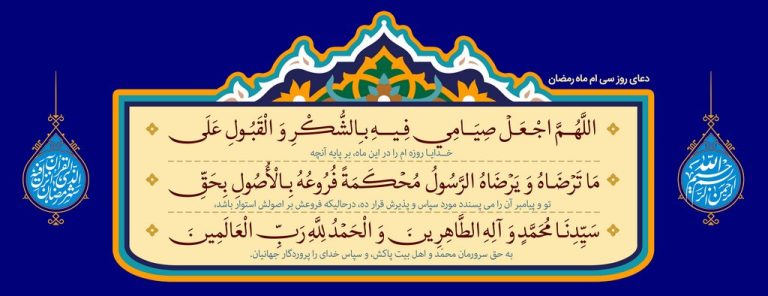 دعای روز سی ام ماه رمضان
اللَّهُمَّ اجْعَلْ صِيَامِي فِيهِ بِالشُّكْرِ وَ الْقَبُولِ عَلَى
خدایا روزه ام را در این ماه، بر پایه آنچه
مَا تَرْضَاهُ وَ يَرْضَاهُ الرَّسُولُ مُحْكَمَةً فُرُوعُهُ بِالْأُصُولِ بِحَقِّ
تو و پیامبر آن را می پسندد مورد سپاس و پذیرش قرار ده، درحالیکه فروعش بر اصولش استوار باشد،
سَيِّدِنَا مُحَمَّدٍ وَ آلِهِ الطَّاهِرِينَ وَ الْحَمْدُ لِلَّهِ رَبِّ الْعَالَمِينَ
به حق سرورمان محمد و اهل بیت پاکش، و سپاس خدای را پروردگار جهانیان.
بسم الله الرحمن الرحیم
شهر رمضان الذی انزل فیه القرآن